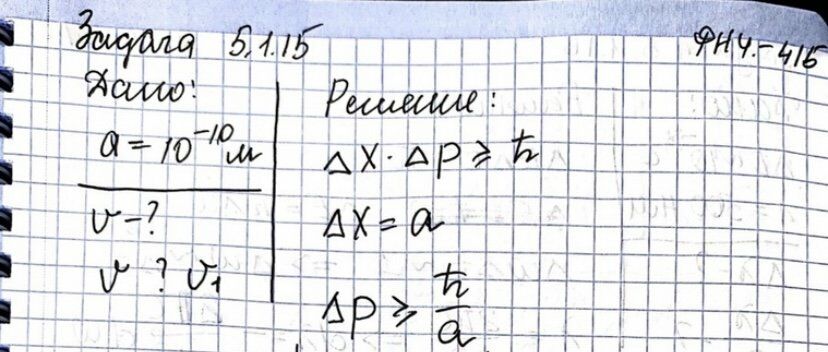 Задача 5.1.15
ФН4-41Б
Дано:
a = 10⁻¹⁰ м
v - ?
v ? v₁
Решение:
Δx · Δp ⩾ ℏ
Δx = a
Δp ⩾ ℏ/a